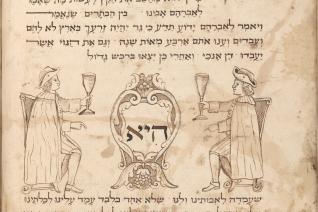 לאברהם אבינו בין הבתרים שנאמר
ויאמר לאברם ידוע תדע כי גר יהיה זרעך בארץ לא להם
ועבדום וענו אתם ארבע מאות שנה וגם את הגוי אשר
יעבדו דן אנכי ואחרי כן יצאו ברכוש גדול
היא
שעמדה לאבותינו ולנו שלא אחד בלבד עמד עלינו לכלותינו